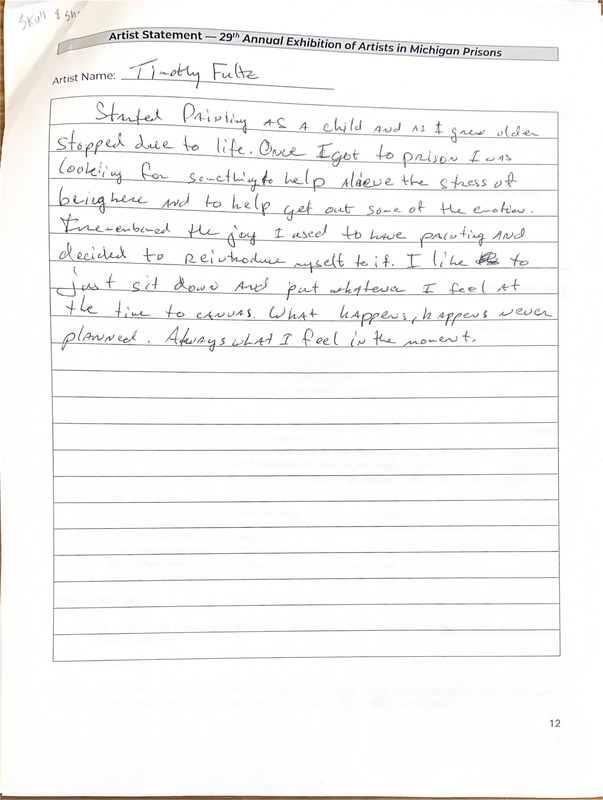 Skull & Sh
Artist Statement — 29th Annual Exhibition of Artists in Michigan Prisons
Artist Name: Timothy Fultz
Started Painting as a child and as I grew older
stopped due to life. Once I got to prison I was
looking for something to help aleive the stress of
being here and to help get out some of the emotion.
I remembered the joy I used to have painting and
decided to reintroduce myself to it. I like to
just sit down and put whatever I feel at
the time to canvas. What happens, happens never
planned. Always what I feel in the moment.
12